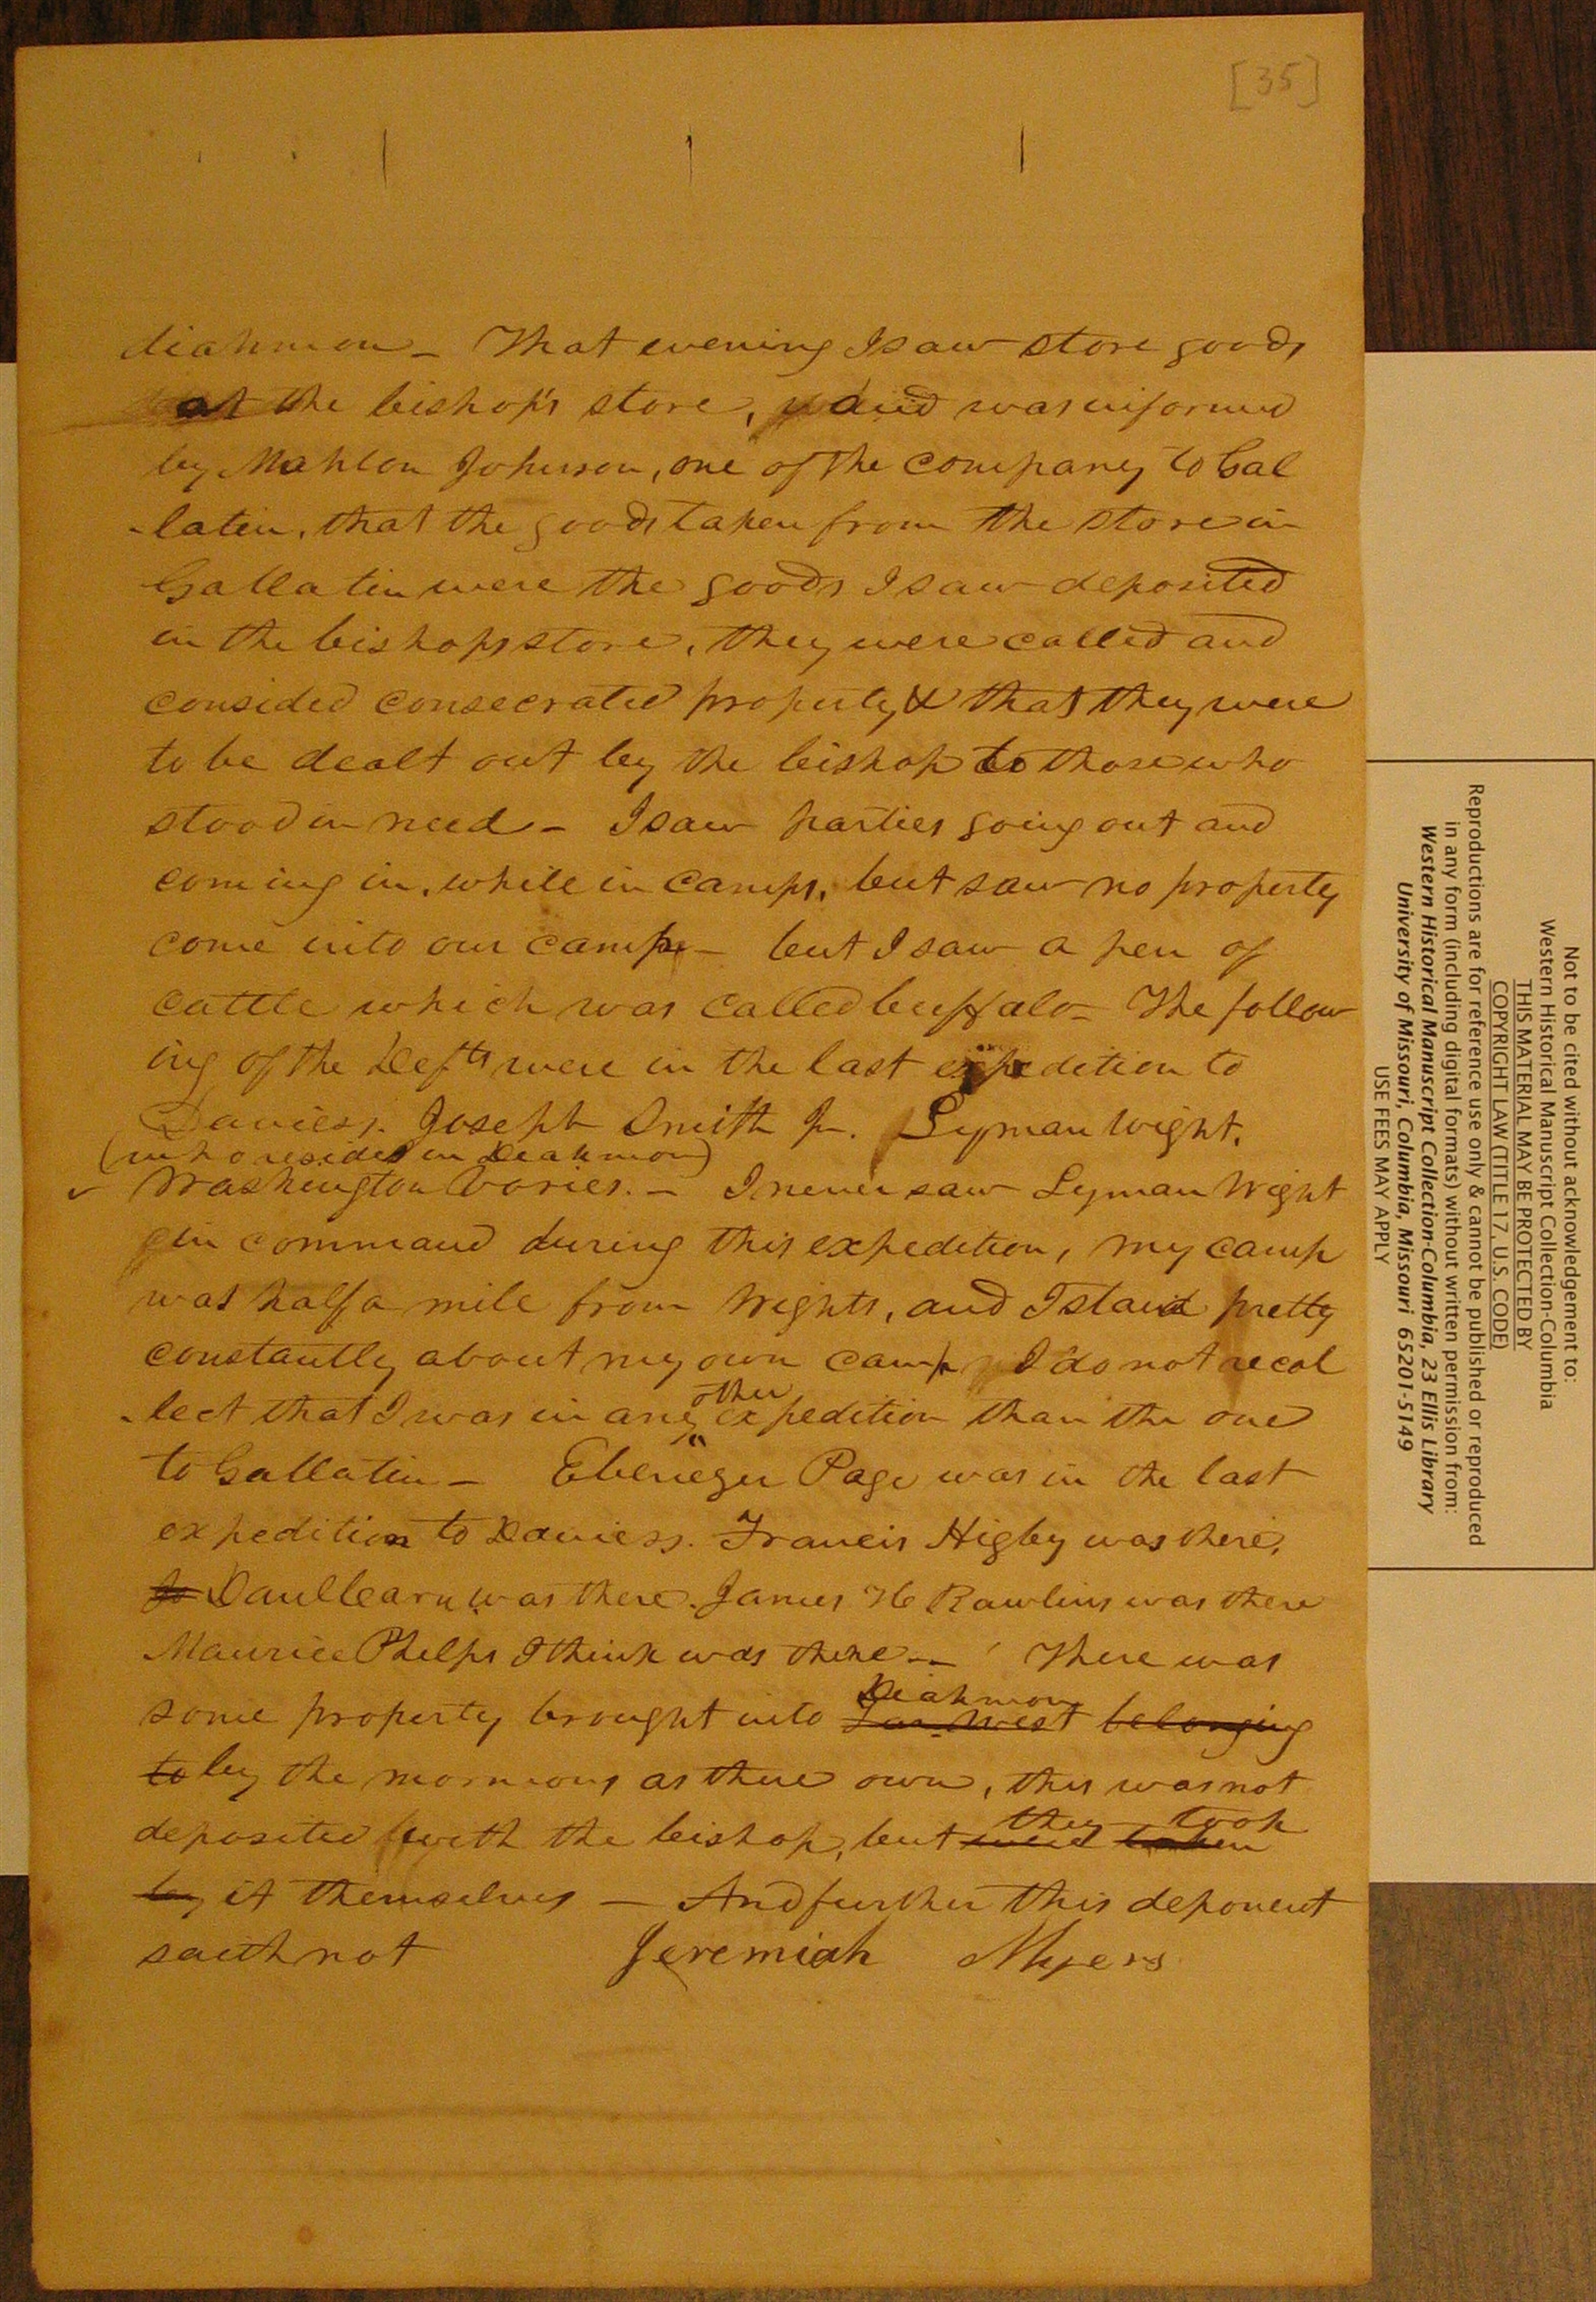 [35]
diahmon - That evening I saw store goods
at the bishop's store, and was informed
by Mahlon Johnson, one of the company to Gal
-latin, that the goods taken from the store in
Gallatin were the goods I saw deposited
in the bishops store, they were called and
consided consecrated property & that they were
to be dealt out by the bishop to those who
stood in need - I saw parties going out and
coming in, while in camps, but saw no property
come into our camp - but I saw a pen of
cattle which was called buffalo - The follow
ing of the Defts were in the last expedition to
Daviess. Joseph Smith Jr. Lyman Wight.
(who resides in Deahmon)
Washington Vories. - I never saw Lyman Wight
in command during this expedition, my camp
was half a mile from Wights, and I staid pretty
constantly about my own camp I do not recol
-lect that I was in any other expedition than the one
to Gallatin - Ebenezer Page was in the last
expedition to Daviess. Francis Higby was there,
Jo Danl Carn was there. James H Rawlins was there
Maurice Phelps I think was there -- There was
some property brought into Far West Deahmon belonging
to by the mormons as there own, this was not
deposited with the bishop, but were taken they took
by it themselves - And further this deponent
saith not Jeremiah Myers
Not to be cited without acknowledgement to:
Western Historical Manuscript Collection-Columbia
THIS MATERIAL MAY BE PROTECTED BY
COPYRIGHT LAW (TITLE 17, U.S. CODE)
Reproductions are for reference use only & cannot be published or reproduced
in any form (including digital formats) without written permission from:
Western Historical Manuscript Collection-Columbia, 23 Ellis Library
University of Missouri, Columbia, Missouri 65201-5149
USE FEES MAY APPLY